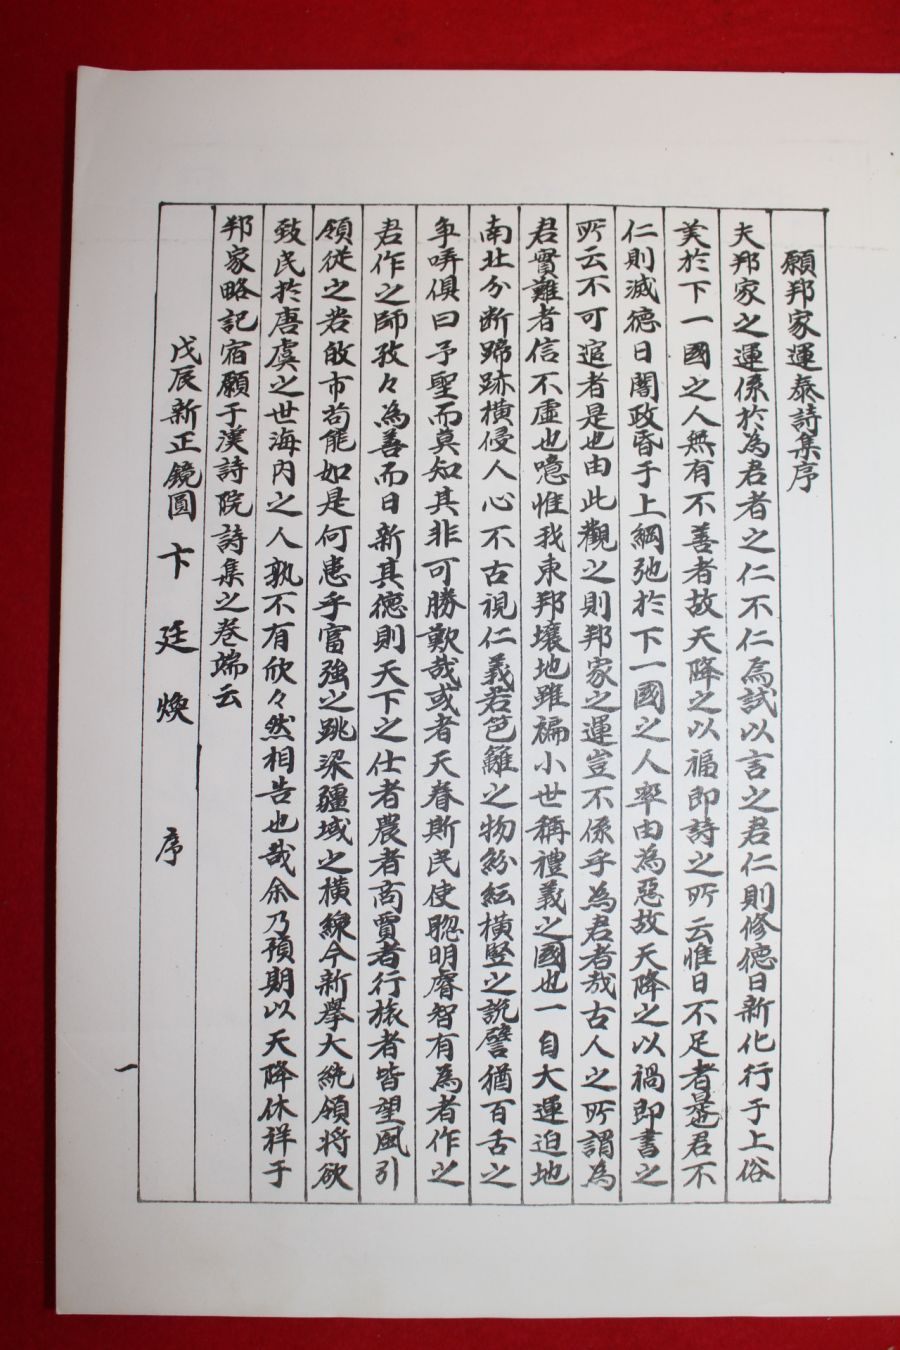 願邦家運泰詩集序
夫邦家之運係於為君者之仁不仁焉試以言之君仁則修德日新化行于上俗
美於下一國之人無有不善者故天降之以福即詩之所云惟日不足者是也君不
仁則滅德日闇政昏于上綱弛於下一國之人率由為惡故天降之以禍即書之
所云不可逭者是也由此觀之則邦家之運豈不係乎為君者哉古人之所謂為
君實難者信不虛也噫惟我東邦壤地雖褊小世稱禮義之國也一自大運迫地
南北分斷蹄跡橫侵人心不古視仁義若笆籬之物紛紜橫竪之說譬猶百舌之
争哢俱曰予聖而莫知其非可勝歎哉或者天眷斯民使聡明睿智有為者作之
君作之師孜々為善而日新其德則天下之仕者農者商賈者行旅者皆望風引
領從之若㪉市苟能如是何患乎富強之跳梁疆域之橫線今新擧大統領将欲
致民於唐虞之世海內之人孰不有欣々然相告也哉余乃預期以天降休祥于
邦家略記宿願于漢詩院詩集之卷端云
戊辰新正鏡圓 卞廷煥 序
一